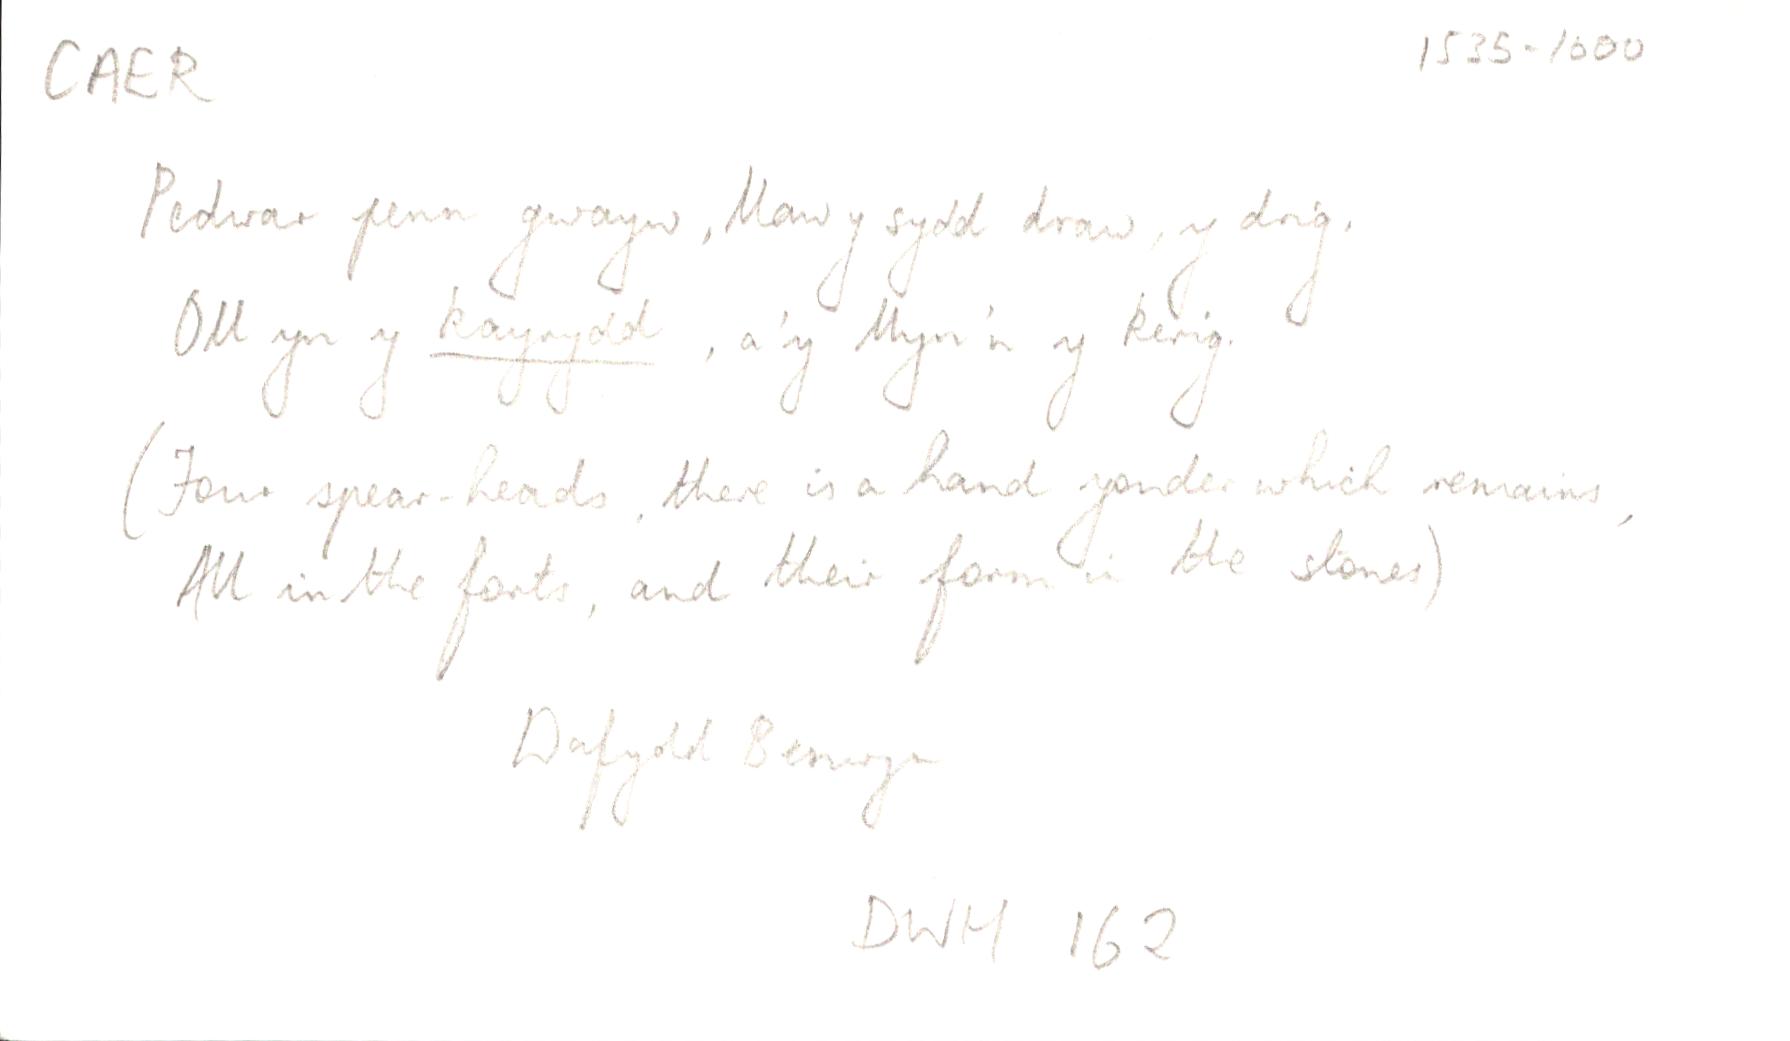 CAER 1535-1600
Pedwar penn gwayw, llaw y sydd draw, y drig.
Oll yn y kayrydd, a'y llyn'n y kerig.
(Four spear-heads, there is a hand yonder which remains,
All in the forts, and their form in the stones)
Dafydd Benwyn
DWH 162